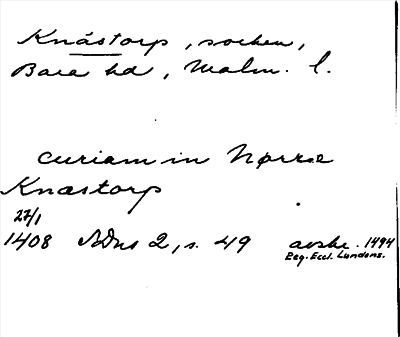 Knästorp, socken,
Bara hd, Malm. l.
curiam in Nørræ
Knæstorp
27/1
1408 ÆDns 2, s. 49 avskr. 1494
Reg. Eccl. Lundens.